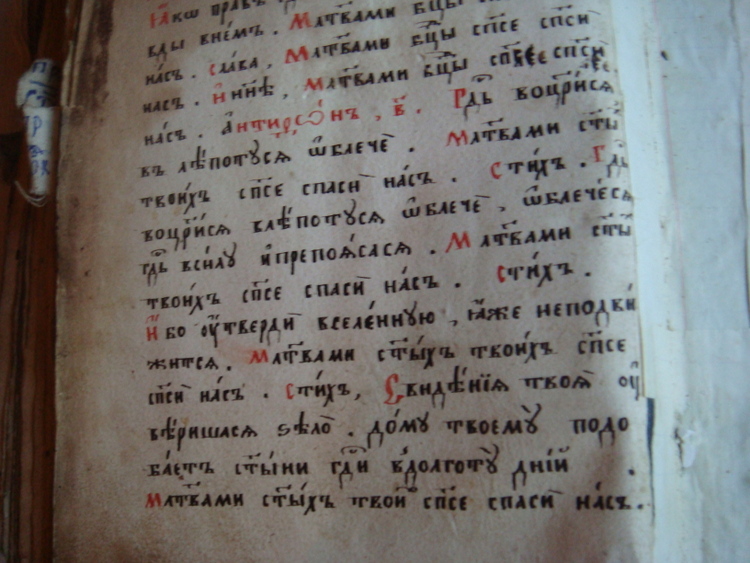 Ꙗ҆кѡ прав
вды внемъ. Мл҃твами бцⷣы
насъ. слава, Мл҃твами бцⷣы сп҃се сп҃си
насъ. и҆ ннѣ, мл҃твами бцⷣы сп҃се сп҃си
насъ. А҆нтифѡ́нъ, в҃. Гдⷭ҇ь воцр҃и́сѧ
въ лѣ́потꙋсѧ ѡ҆блече. Мл҃твами ст҃ы
твои́хъ сп҃се спаси на́съ. стихъ. Гдⷭ҇ь
воцр҃и́сѧ влѣ́потꙋсѧ ѡ҆блече, ѡ҆блече́сѧ
гдⷭ҇ь всилꙋ и҆препоѧсасѧ. Мл҃твами ст҃ы
твои́хъ сп҃се спаси на́съ. сти́хъ.
И҆бо оу҆тверди вселе́ннꙋю, ꙗ҆же неподви
житсѧ. мл҃твами ст҃ы́хъ твои́хъ сп҃се
сп҃си на́съ. сти́хъ, Свидѣ́нїѧ твоѧ оу҆
вѣ́ришасѧ ѕѣло. до́мꙋ твоемꙋ̀ подо
ба́етъ ст҃ы́ни гдⷭ҇и вдолготꙋ̀ дні́й.
мл҃твами ст҃ы́хъ твоиⷯ сп҃се спаси на́съ.